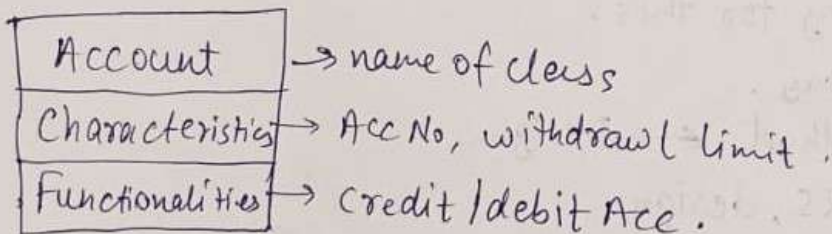 Account → name of class
Characteristics → Acc No, withdrawl limit.
Functionalities → credit/debit Acc.